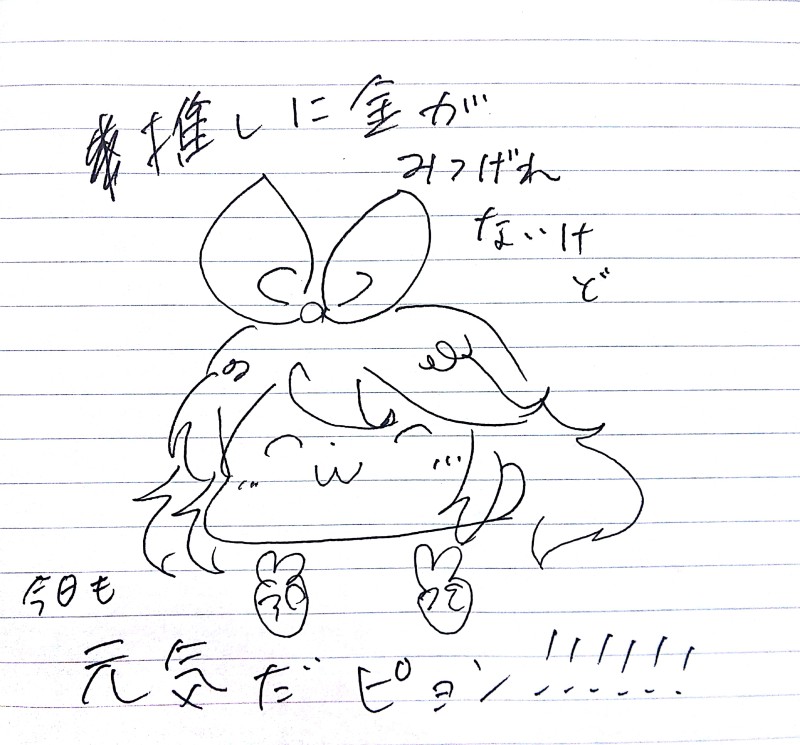 推しに金が
みつげれ
ないけ
ど
今日も
元気だピョン!!!!!!